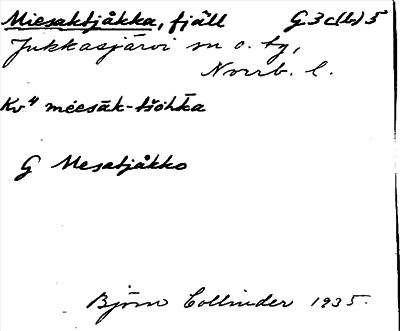 Miesaktjåkka, fjäll G.3c(b)5
Jukkasjärvi sn o. tg,
Norrb. l.
Kv⁴ mēesàk-tšòhka
G Mesatjåkko
Björn Collinder 1935.